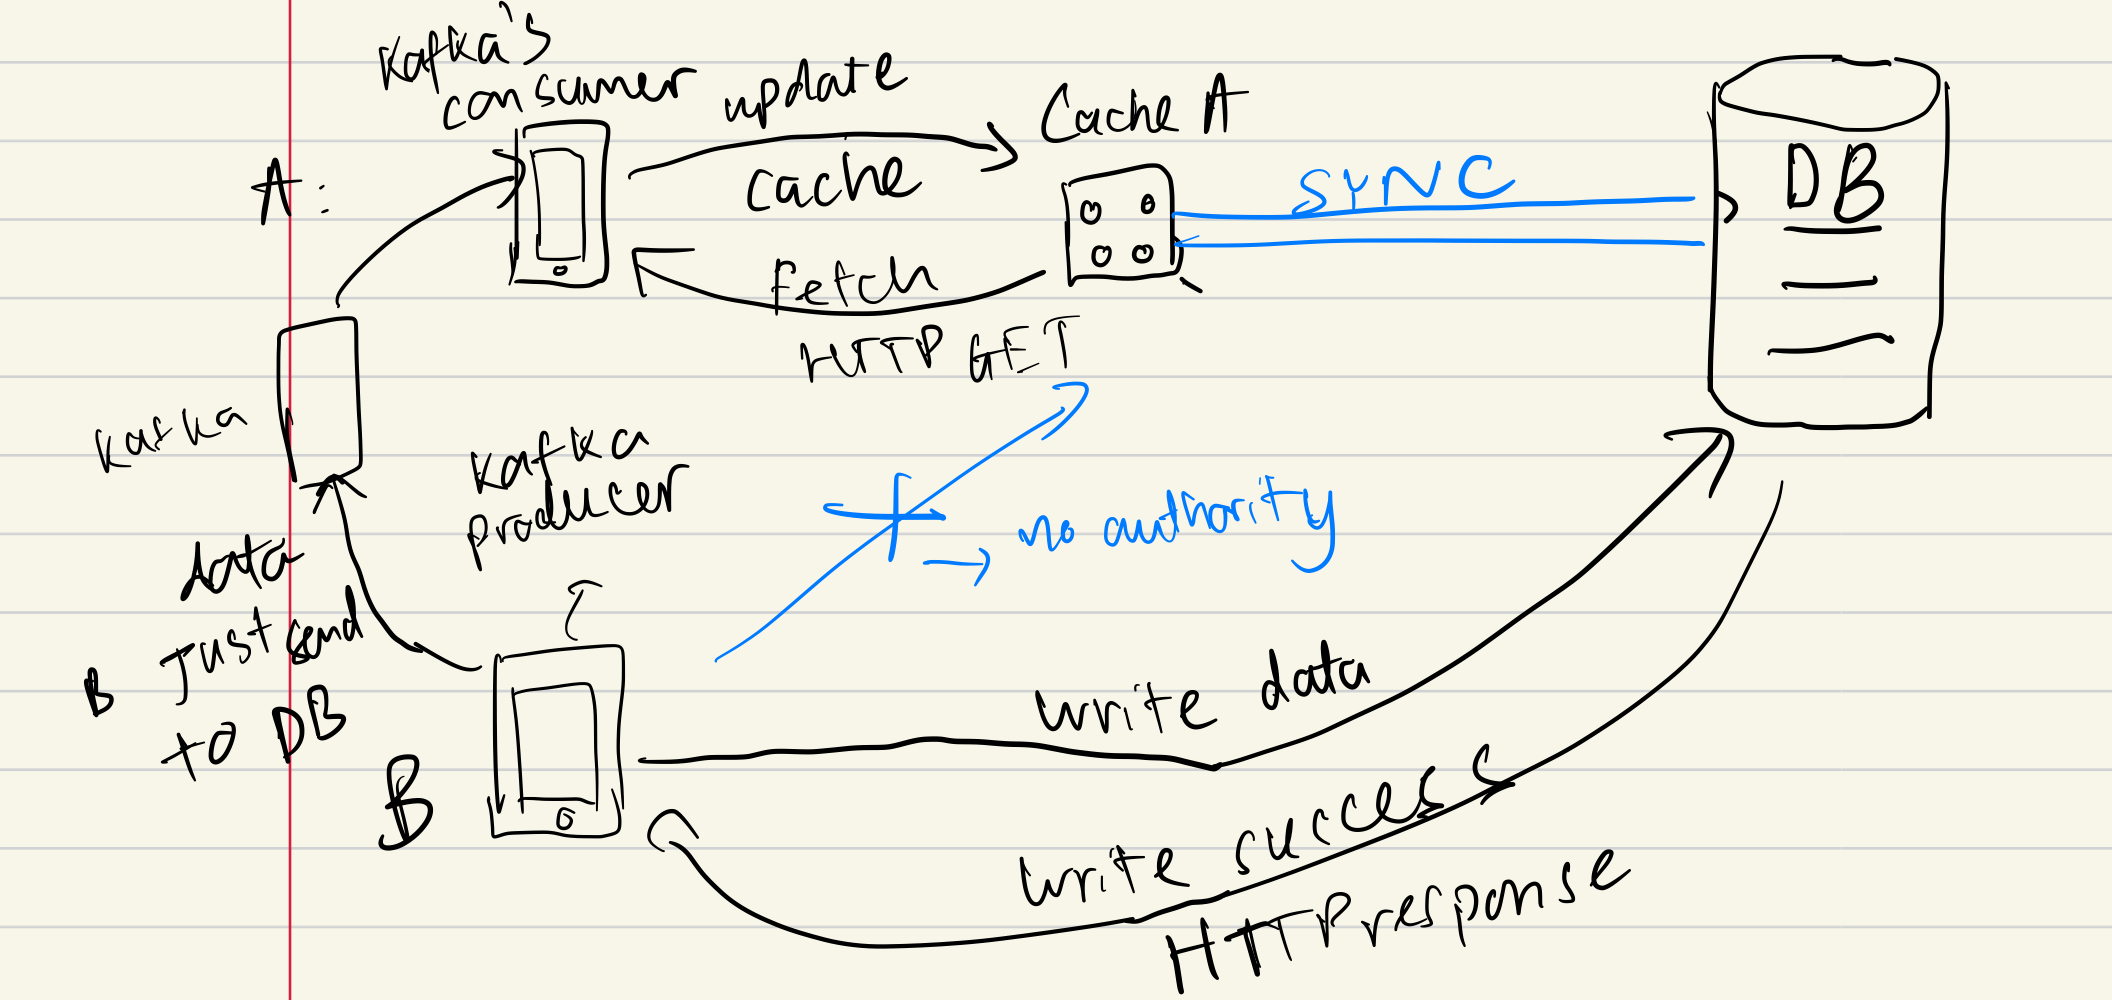 Kafka's
consumer
update
cache
Cache A
SYNC
DB
A:
Fetch
HTTP GET
Kafka
Kafka
producer
no authority
data
B just send
to DB
B
write data
write success
HTTP response